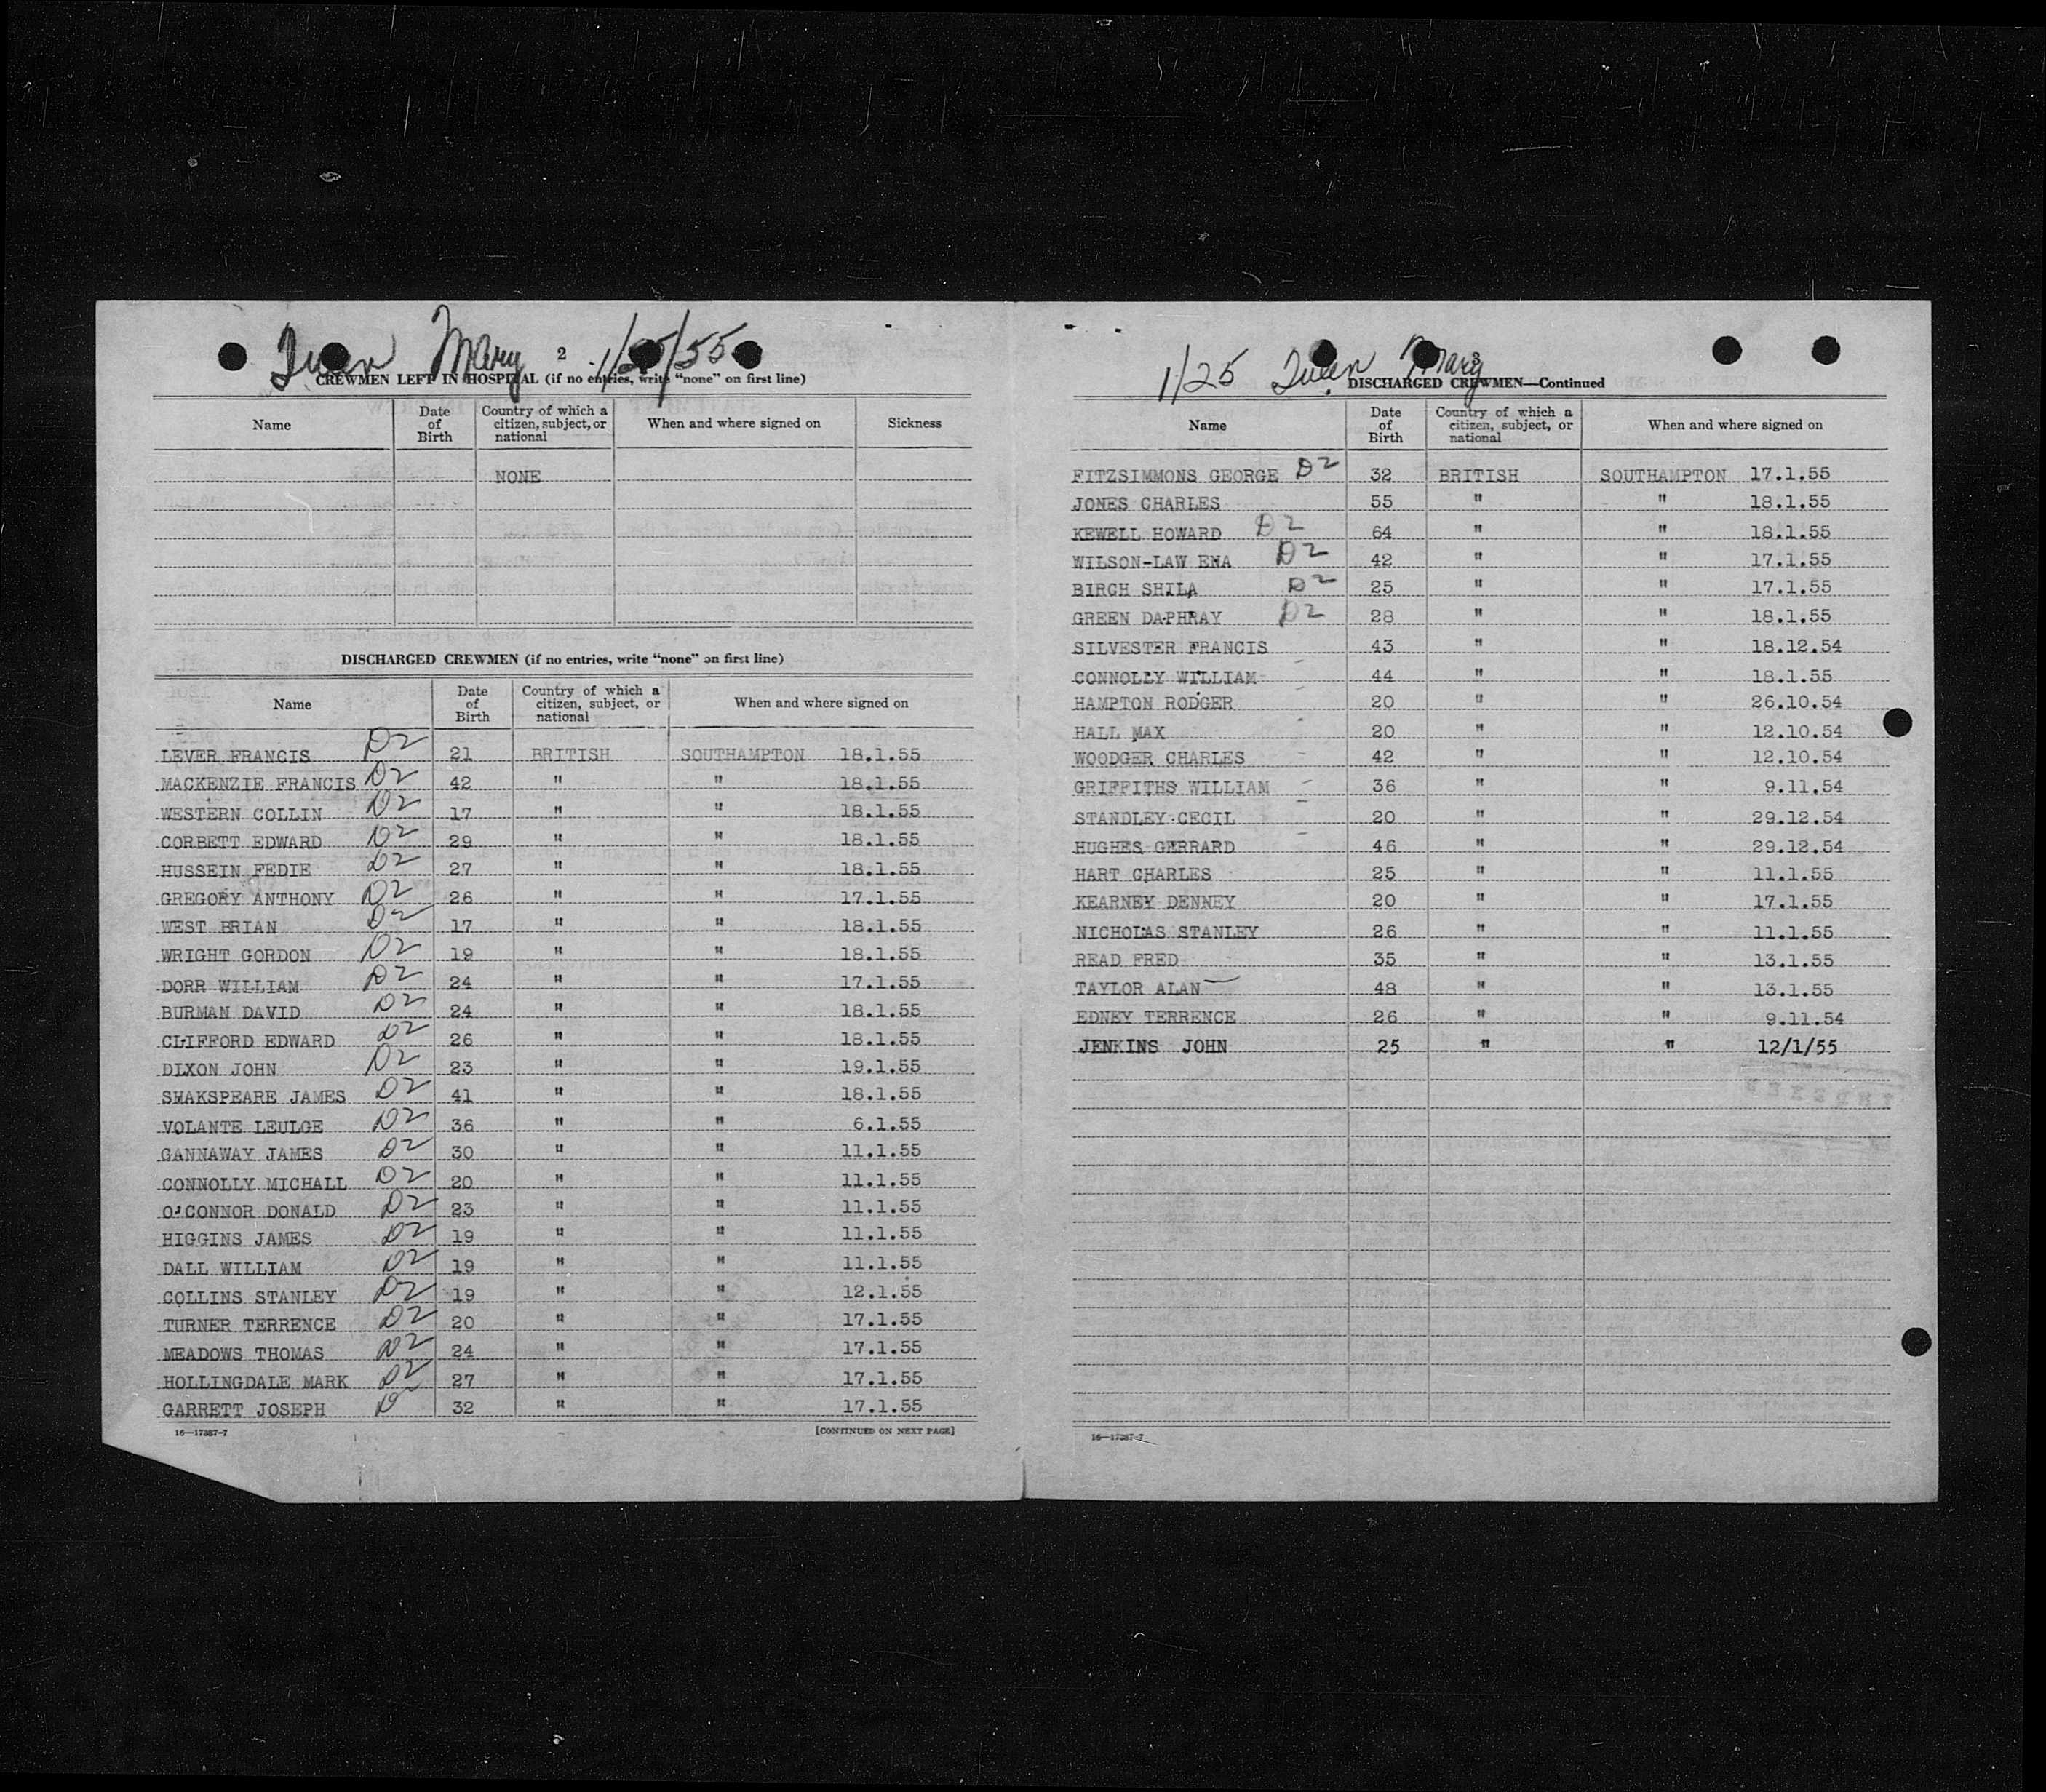 Queen Mary 2 1/25/55
CREWMEN LEFT IN HOSPITAL (if no entries, write "none" on first line)
Name Date of Birth Country of which a citizen, subject, or national When and where signed on Sickness
NONE
DISCHARGED CREWMEN (if no entries, write "none" on first line)
Name Date of Birth Country of which a citizen, subject, or national When and where signed on
LEVER FRANCIS D2 21 BRITISH SOUTHAMPTON 18.1.55
MACKENZIE FRANCIS D2 42 " " 18.1.55
WESTERN COLLIN D2 17 " " 18.1.55
CORBETT EDWARD D2 29 " " 18.1.55
HUSSEIN FEDIE D2 27 " " 18.1.55
GREGORY ANTHONY D2 26 " " 17.1.55
WEST BRIAN D2 17 " " 18.1.55
WRIGHT GORDON D2 19 " " 18.1.55
DORR WILLIAM D2 24 " " 17.1.55
BURMAN DAVID D2 24 " " 18.1.55
CLIFFORD EDWARD D2 26 " " 18.1.55
DIXON JOHN D2 23 " " 19.1.55
SHAKSPEARE JAMES D2 41 " " 18.1.55
VOLANTE LEULGE D2 36 " " 6.1.55
GANNAWAY JAMES D2 30 " " 11.1.55
CONNOLLY MICHALL D2 20 " " 11.1.55
O'CONNOR DONALD D2 23 " " 11.1.55
HIGGINS JAMES D2 19 " " 11.1.55
DALL WILLIAM D2 19 " " 11.1.55
COLLINS STANLEY D2 19 " " 12.1.55
TURNER TERRENCE D2 20 " " 17.1.55
MEADOWS THOMAS D2 24 " " 17.1.55
HOLLINGDALE MARK D2 27 " " 17.1.55
GARRETT JOSEPH D2 32 " " 17.1.55
16—17387-7 [CONTINUED ON NEXT PAGE]
1/25 Queen Mary 3
DISCHARGED CREWMEN—Continued
Name Date of Birth Country of which a citizen, subject, or national When and where signed on
FITZSIMMONS GEORGE D2 32 BRITISH SOUTHAMPTON 17.1.55
JONES CHARLES 55 " " 18.1.55
KEWELL HOWARD D2 64 " " 18.1.55
WILSON-LAW ENA D2 42 " " 17.1.55
BIRCH SHILA D2 25 " " 17.1.55
GREEN DAPHRAY D2 28 " " 18.1.55
SILVESTER FRANCIS 43 " " 18.12.54
CONNOLLY WILLIAM 44 " " 18.1.55
HAMPTON RODGER 20 " " 26.10.54
HALL MAX 20 " " 12.10.54
WOODGER CHARLES 42 " " 12.10.54
GRIFFITHS WILLIAM 36 " " 9.11.54
STANDLEY CECIL 20 " " 29.12.54
HUGHES GERRARD 46 " " 29.12.54
HART CHARLES 25 " " 11.1.55
KEARNEY DENNEY 20 " " 17.1.55
NICHOLAS STANLEY 26 " " 11.1.55
READ FRED 35 " " 13.1.55
TAYLOR ALAN 48 " " 13.1.55
EDNEY TERRENCE 26 " " 9.11.54
JENKINS JOHN 25 " " 12/1/55
16—17387-7